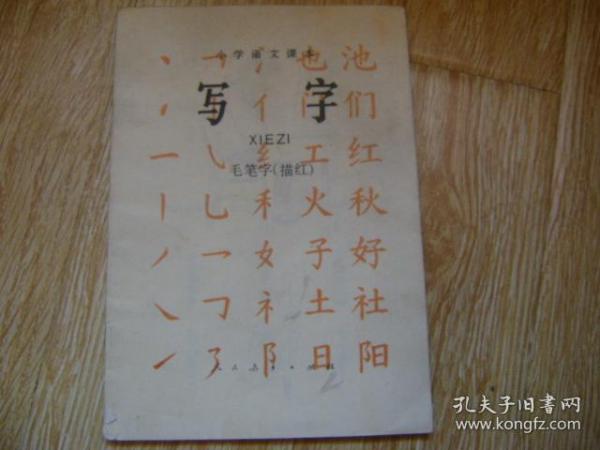 小学语文课本
丶 乛 氵 也 池
写字
丿 亻 门 们
XIEZI
一 ㇂ 纟 工 红
毛笔字(描红)
丨 乚 禾 火 秋
丿 一 女 子 好
㇏ ㇆ 礻 土 社
㇀ ㇌ 阝 日 阳
人民教育出版社
孔夫子旧书网
www.kongfz.com